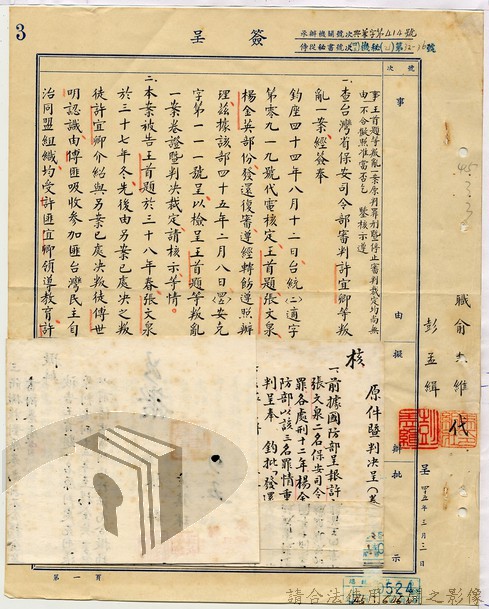 3
簽呈
承辦機關號次
號次
事由擬辦批示
事由：王首題等叛亂一案原判罪刑暨停止審判裁定均尚無不合擬照准當否乞鑒核示遵
職俞大維
彭孟緝
代
呈
四五年三月二日
一、查台灣省保安司令部審判許宜卿等叛
亂一案經簽奉
鈞座四十四年八月十二日台統（二）適字
第零九一九號代電核定王首題張文泉
楊金英部份發還復審遵經轉飭遵照辦
理茲據該部四十五年二月八日
字第一一一號呈以檢呈王首題等叛亂
一案卷證暨判決裁定請核示等情。
二、本案被告王首題於三十八年春張文泉
於三十七年冬先後由另案已處決之叛
徒許宜卿介紹與另案已處決叛徒傅世
明認識由傅匪吸收參加匪台灣民主自
治同盟組織均受許匪宜卿領導教育許
原件暨判決呈
核
一、前據國防部呈報許
張文泉二名保安司令
罪各處刑十二年楊金
防部以該三名罪情重
判呈奉 鈞批「發還
第一頁
524
請合法使用
之影像